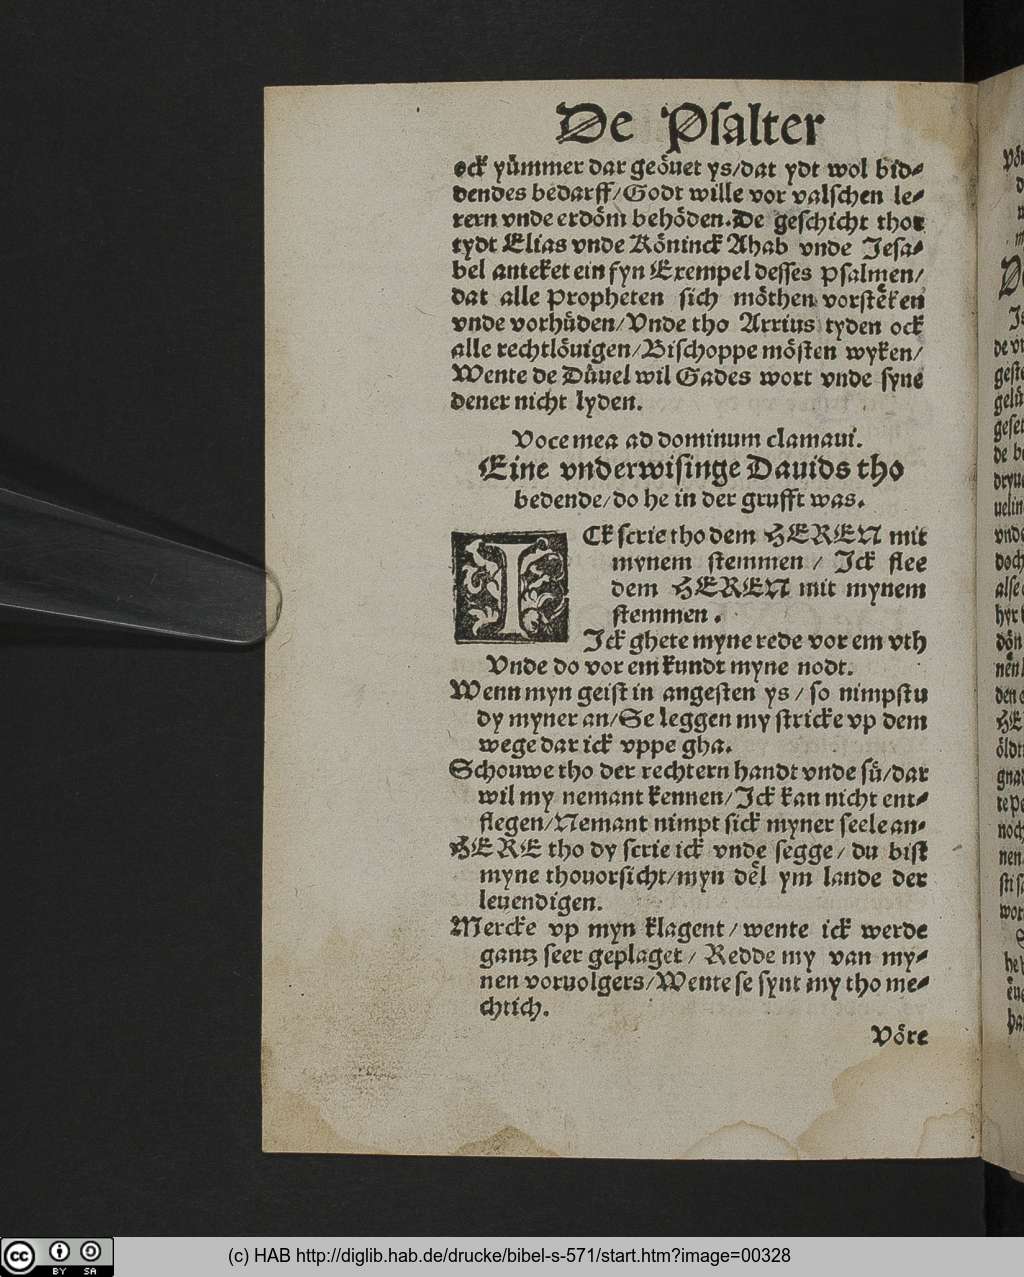 De Psalter
ock yümmer dar geöuet ys/dat ydt wol bid⸗
dendes bedarff/Godt wille vor valschen le⸗
rern vnde erdöm behöden. De geschicht thor
tydt Elias vnde Köninck Ahab vnde Jesa⸗
bel anteket ein fyn Exempel desses psalmen/
dat alle Propheten sich möthen vorstëken
vnde vorhüden/Vnde tho Arrius tyden ock
alle rechtlöuigen/Bischoppe mösten wyken/
Wente de Düuel wil Gades wort vnde syne
dener nicht lyden.
Voce mea ad dominum clamaui.
Eine vnderwisinge Dauids tho
bedende/do he in der grufft was.
ICk scrie tho dem HEREN mit
mynem stemmen / Ick flee
dem HEREN mit mynem
stemmen.
Ick ghete myne rede vor em vth
Vnde do vor em kundt myne nodt.
Wenn myn geist in angesten ys/ so nimpstu
dy myner an/Se leggen my stricke vp dem
wege dar ick vppe gha.
Schouwe tho der rechtern handt vnde sü/dar
wil my nemant kennen/Ick kan nicht ent⸗
flegen/Nemant nimpt sick myner seele an⸗
HERE tho dy scrie ick vnde segge/ du bist
myne thouorsicht/myn dël ym lande der
leuendigen.
Mercke vp myn klagent/wente ick werde
gantz seer geplaget/ Redde my van my⸗
nen voruolgers/Wente se synt my tho me⸗
chtich.
Vöre
(c) HAB http://diglib.hab.de/drucke/bibel-s-571/start.htm?image=00328
cc BY SA